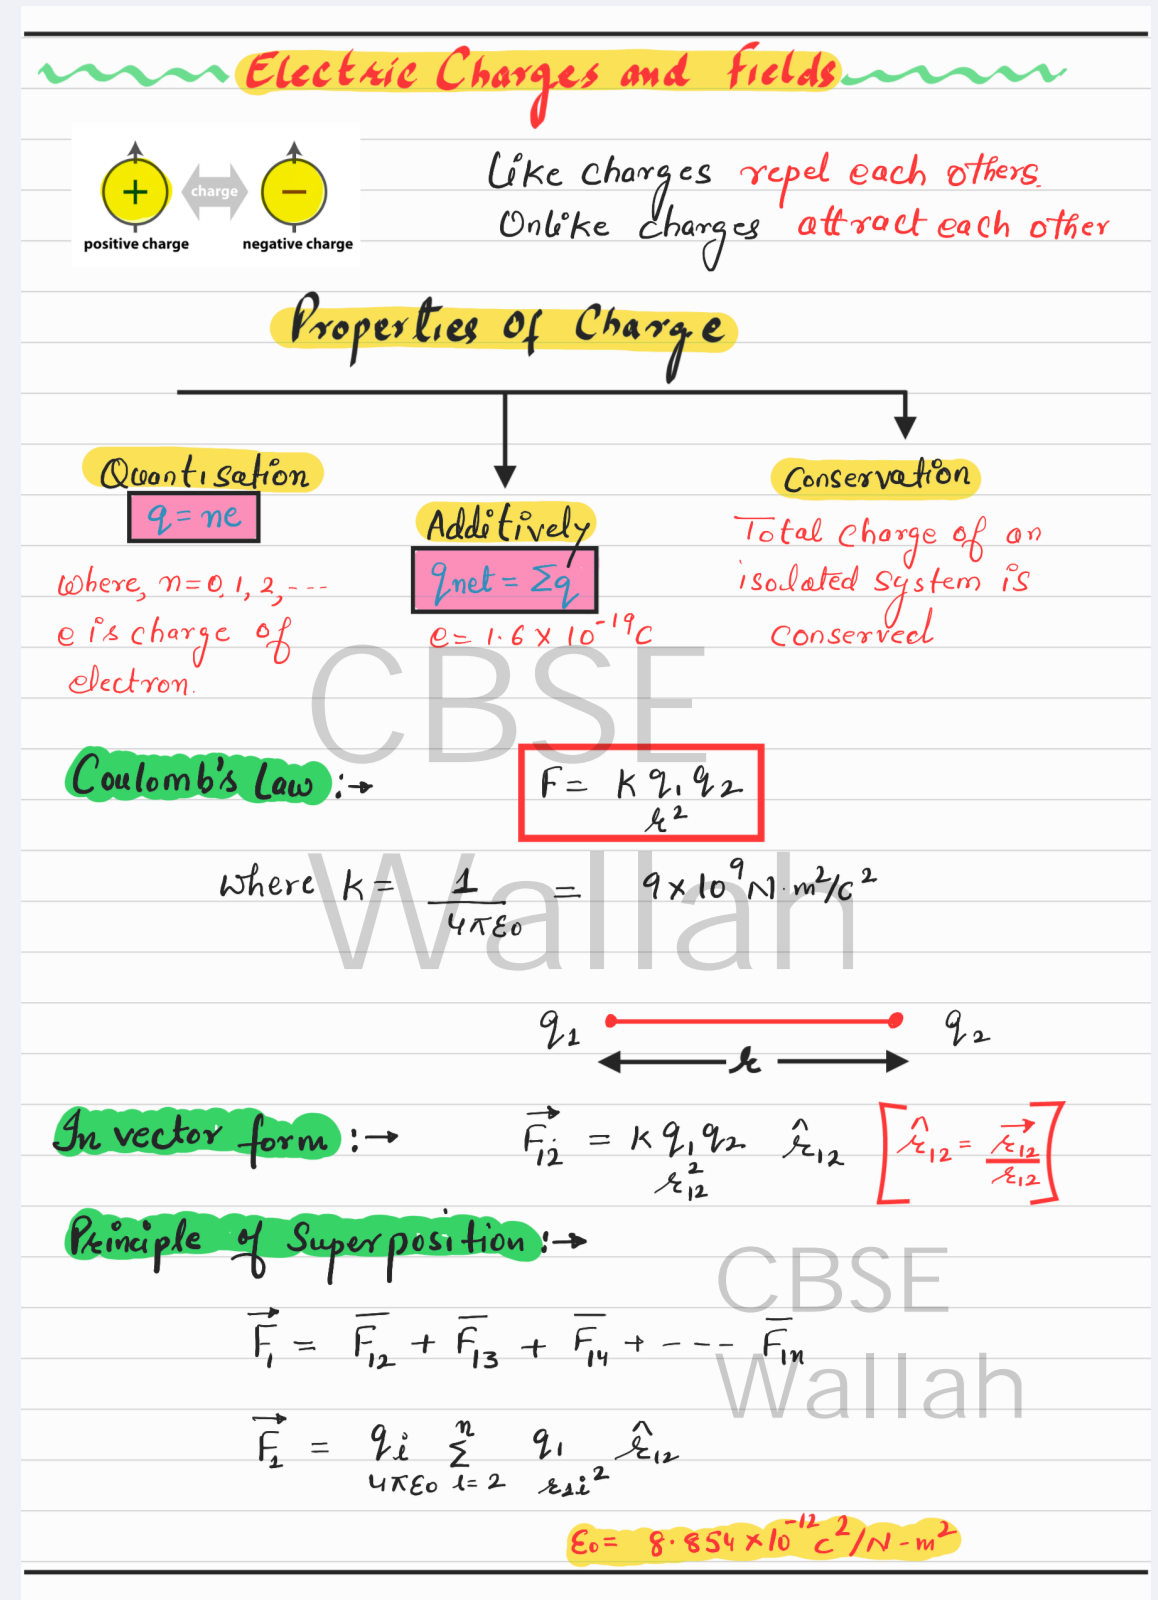 Electric Charges and Fields
+ charge −
positive charge negative charge
Like charges repel each others.
Unlike charges attract each other
Properties Of Charge
Quantisation
q = ne
where, n=0,1,2,---
e is charge of
electron.
Additively
qnet = Σq
e= 1.6 × 10⁻¹⁹C
Conservation
Total charge of an
isolated system is
conserved
CBSE
Wallah
Coulomb's Law :→
F = K q₁q₂
r²
where k = 1 = 9×10⁹N·m²/c²
4πε₀
q₁ q₂
r
In vector form :→
F⃗₁₂ = K q₁q₂ r̂₁₂ [r̂₁₂ = r⃗₁₂
r₁₂² r₁₂]
Principle of Superposition :→
CBSE
Wallah
F⃗₁ = F̅₁₂ + F̅₁₃ + F̅₁₄ + --- F̅₁n
F⃗₁ = qi Σ q₁ r̂₁₂
n
4πε₀ i=2 r₁i²
ε₀= 8.854×10⁻¹²c²/N-m²